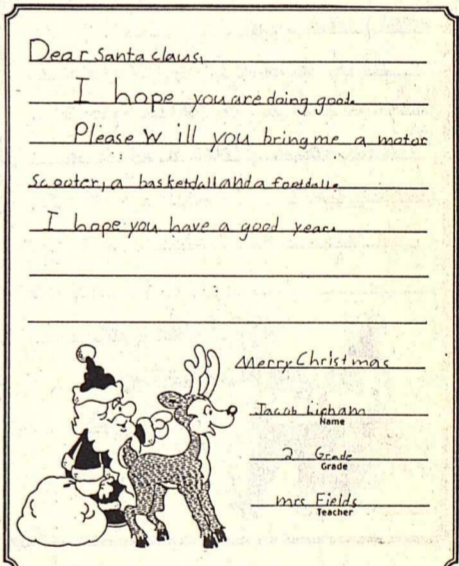 Dear Santa claus,
I hope you are doing good.
Please W ill you bring me a motor
scooter, a basketdall and a footdall.
I hope you have a good year.
Merry Christmas
Jacob Lipham
Name
2 Grade
Grade
mrs Fields
Teacher